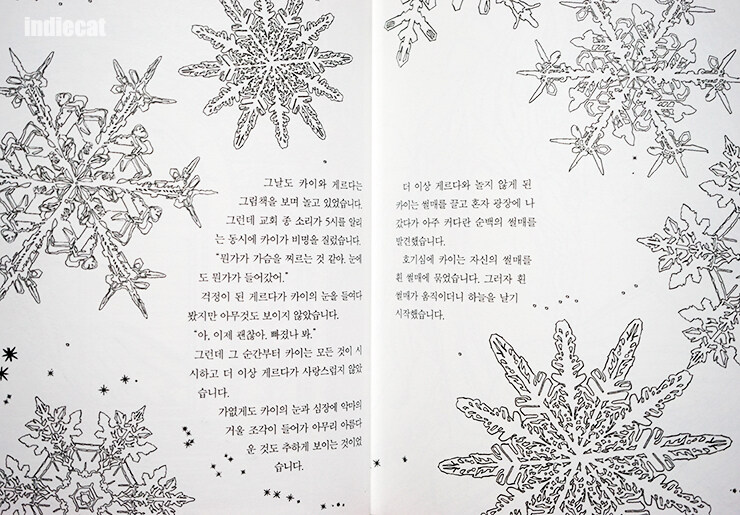 indiecat
그날도 카이와 게르다는
그림책을 보며 놀고 있었습니다.
그런데 교회 종 소리가 5시를 알리
는 동시에 카이가 비명을 질렀습니다.
"뭔가가 가슴을 찌르는 것 같아. 눈에
도 뭔가가 들어갔어."
걱정이 된 게르다가 카이의 눈을 들여다
봤지만 아무것도 보이지 않았습니다.
"아, 이제 괜찮아. 빠졌나 봐."
그런데 그 순간부터 카이는 모든 것이 시
시하고 더 이상 게르다가 사랑스럽지 않았
습니다.
가엾게도 카이의 눈과 심장에 악마의
거울 조각이 들어가 아무리 아름다
운 것도 추하게 보이는 것이었
습니다.
더 이상 게르다와 놀지 않게 된
카이는 썰매를 끌고 혼자 광장에 나
갔다가 아주 커다란 순백의 썰매를
발견했습니다.
호기심에 카이는 자신의 썰매를
흰 썰매에 묶었습니다. 그러자 흰
썰매가 움직이더니 하늘을 날기
시작했습니다.